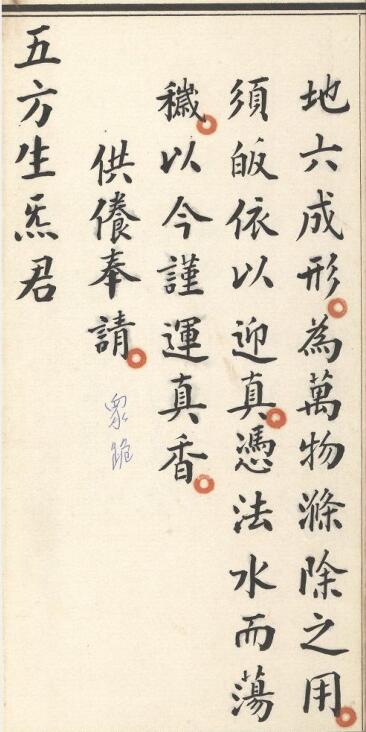 地六成形為萬物滌除之用
須皈依以迎真憑法水而蕩
穢以今謹運真香
供養奉請
眾跪
五方生炁君